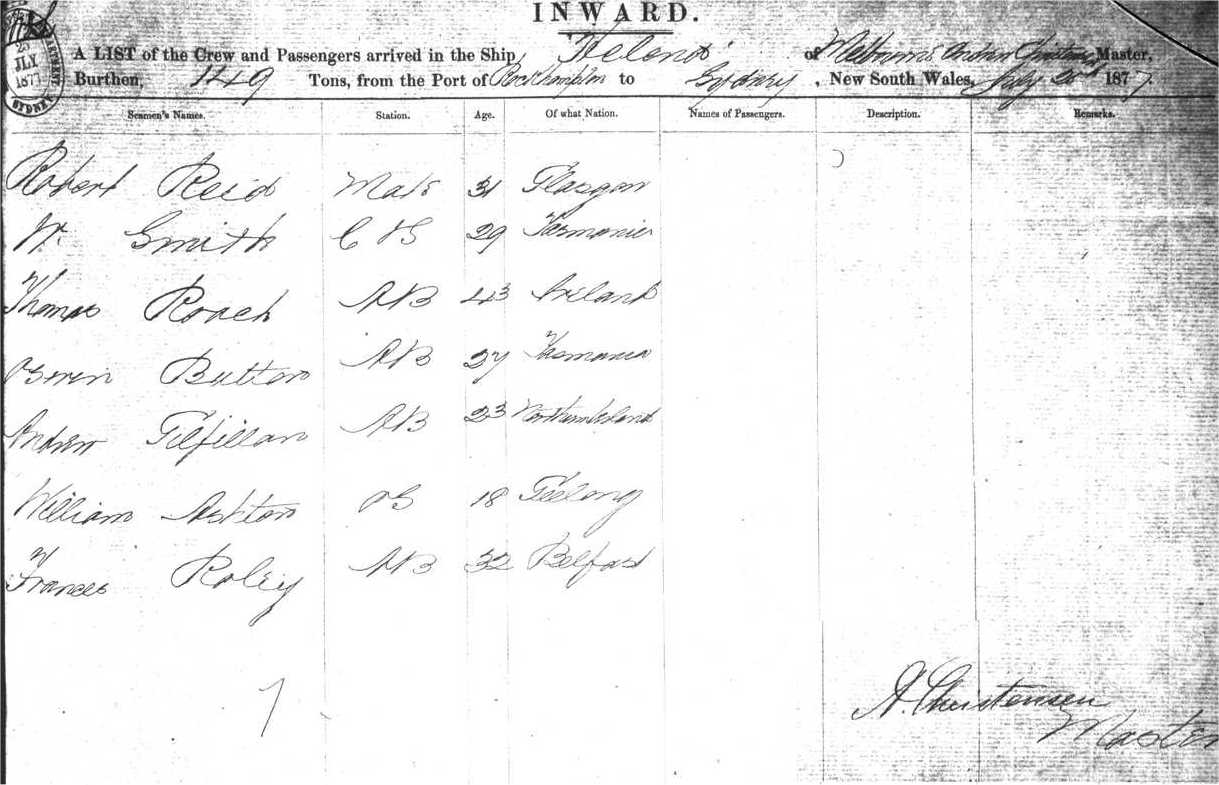 INWARD.
A LIST of the Crew and Passengers arrived in the Ship Helena of Melbourne Master,
Burthen, 149 Tons, from the Port of Rockhampton to Sydney, New South Wales, July 1877
25
JLY
1877
SYDNEY
Seamen's Names. Station. Age. Of what Nation. Names of Passengers. Description. Remarks.
Robert Reid Mate 31 Glasgow
W. Smith C & S 29 Tasmania
Thomas Roach AB 43 Ireland
Button AB 27 Tasmania
Andrew Gilfillan AB 23 Northumberland
William Ashton OS 18 Geelong
Frances Roley AB 32 Belfast
7
A. Christensen
Master